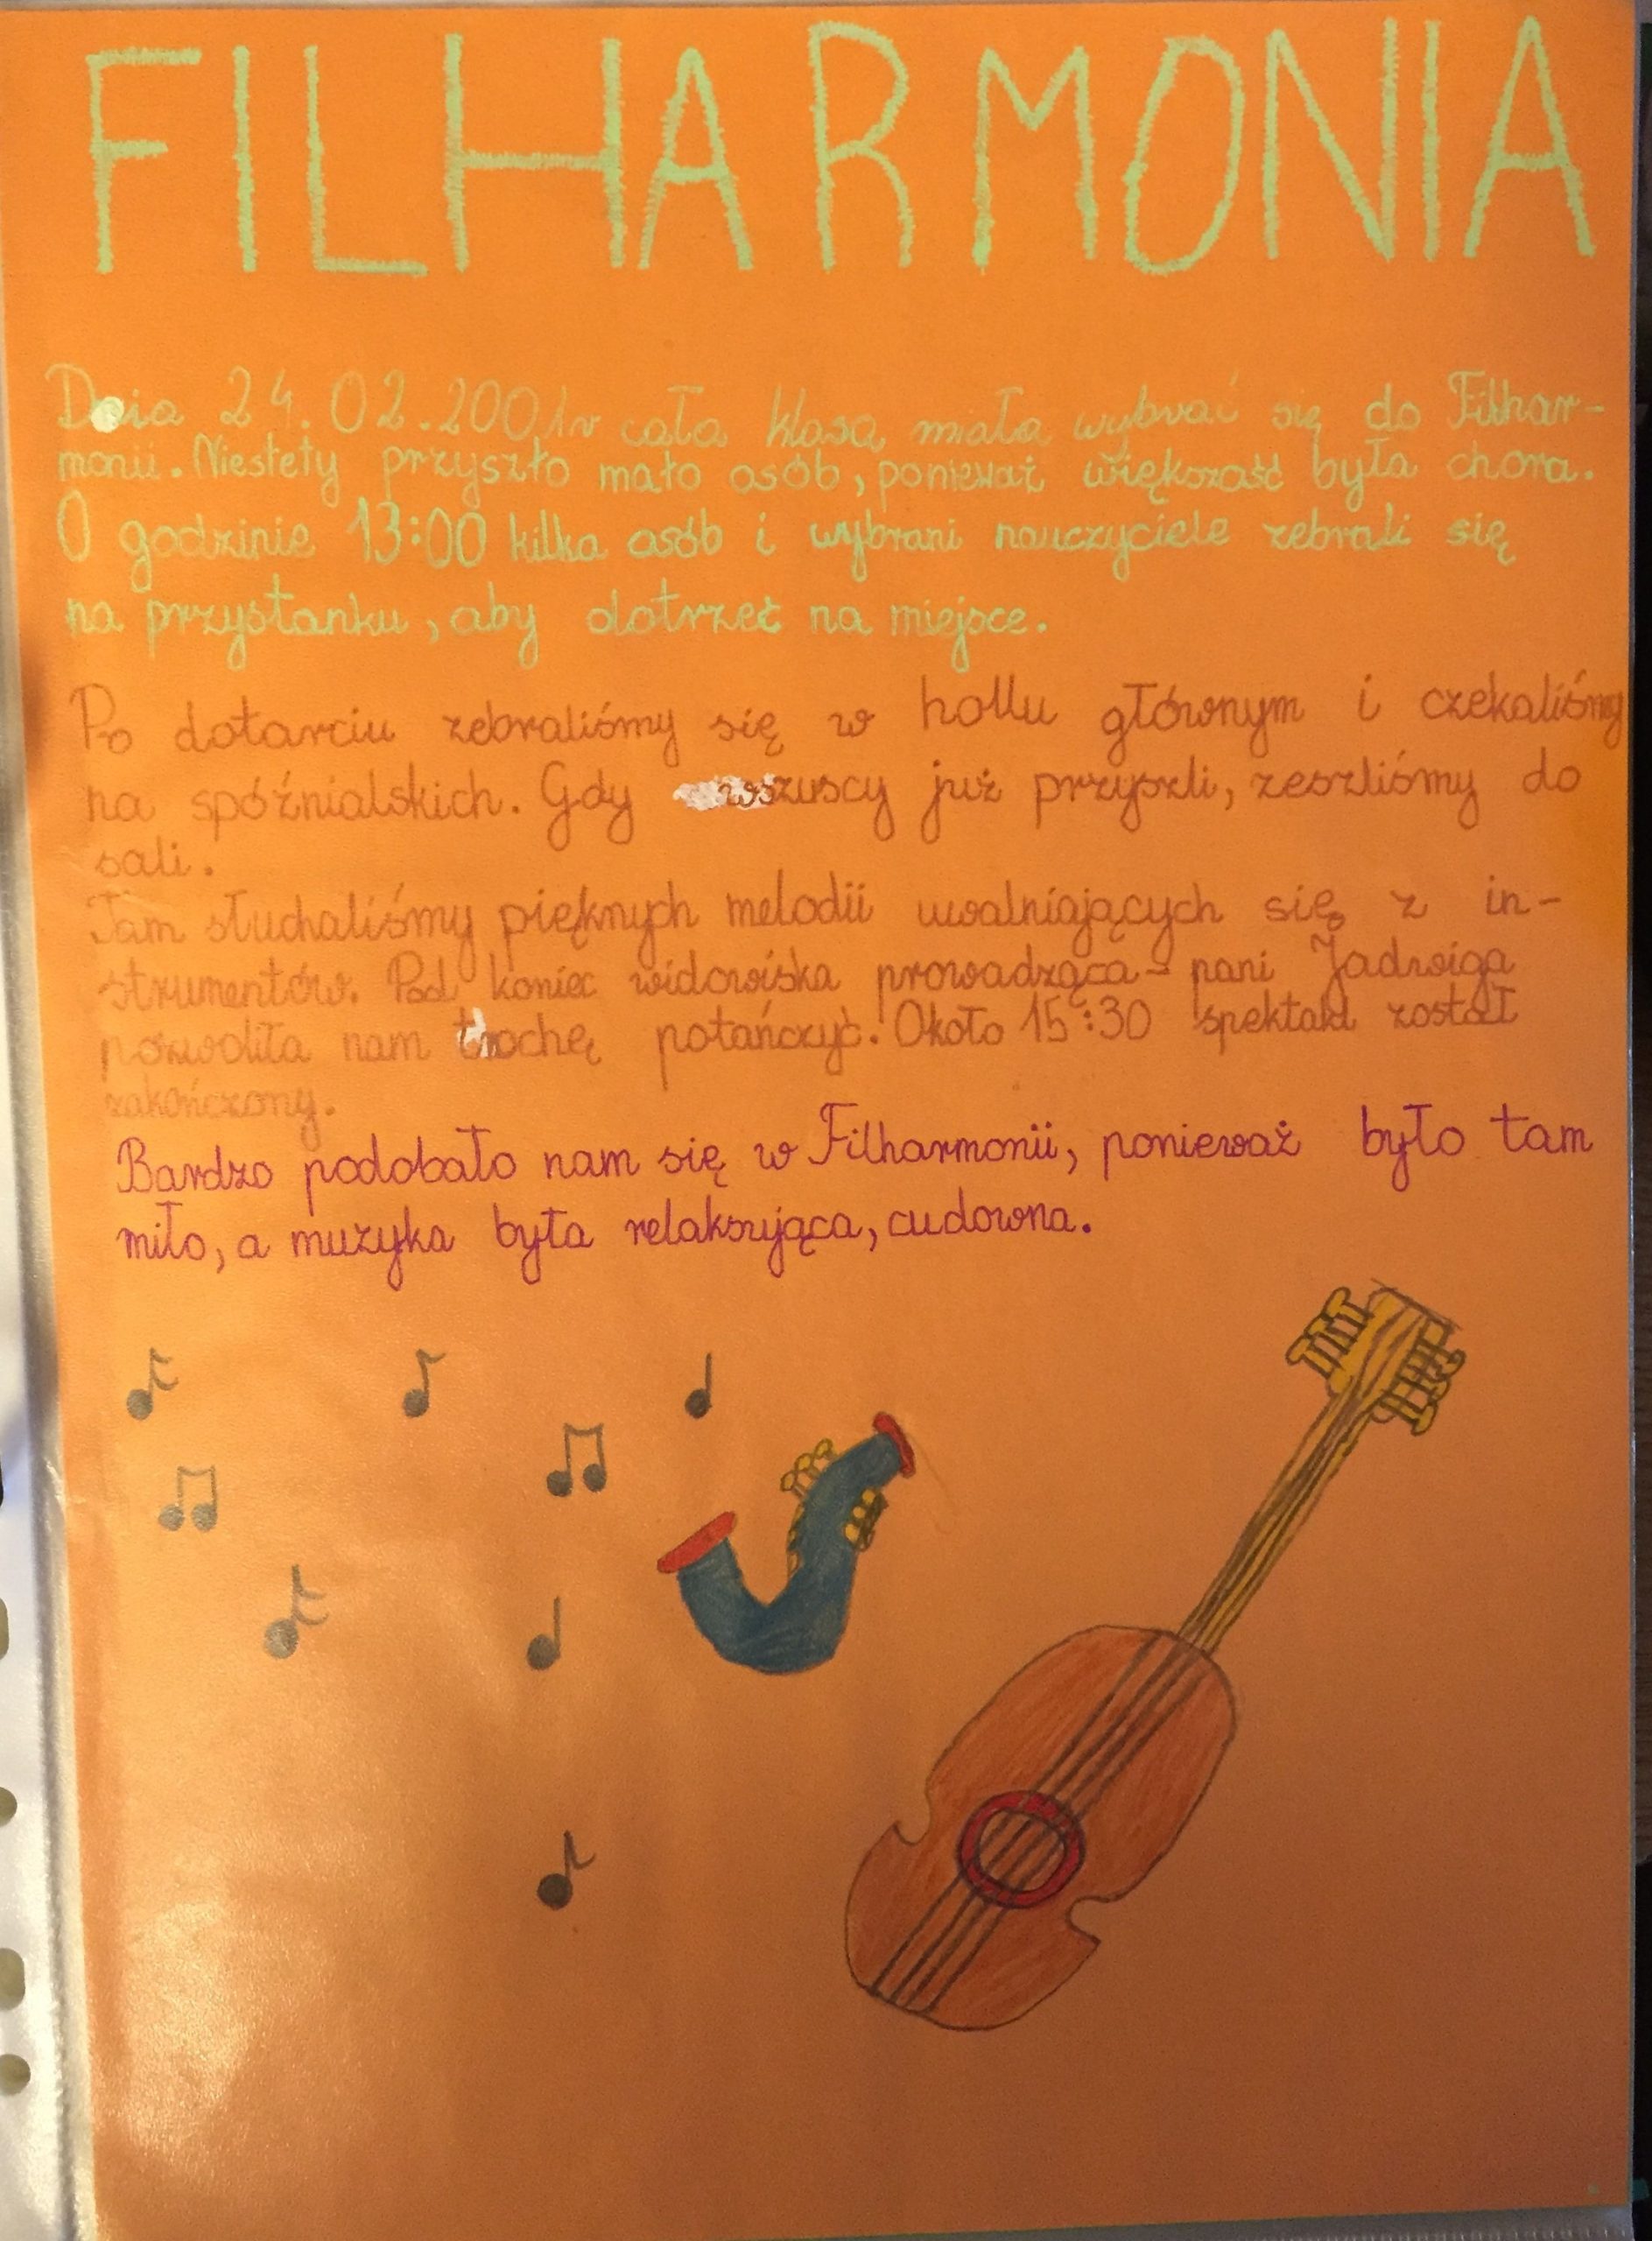 FILHARMONIA
Dnia 24.02.2001r cała klasa miała wybrać się do Filhar-
monii. Niestety przyszło mało osób, ponieważ większość była chora.
O godzinie 13:00 kilka osób i wybrani nauczyciele zebrali się
na przystanku, aby dotrzeć na miejsce.
Po dotarciu zebraliśmy się w hollu głównym i czekaliśmy
na spóźnialskich. Gdy wszuscy już przyszli, zeszliśmy do
sali.
Tam słuchaliśmy pięknych melodii uwalniających się z in-
strumentów. Pod koniec widowiska prowadząca - pani Jadwiga
pozwoliła nam trochę potańczyć. Około 15:30 spektakl został
zakończony.
Bardzo podobało nam się w Filharmonii, ponieważ było tam
miło, a muzyka była relaksująca, cudowna.